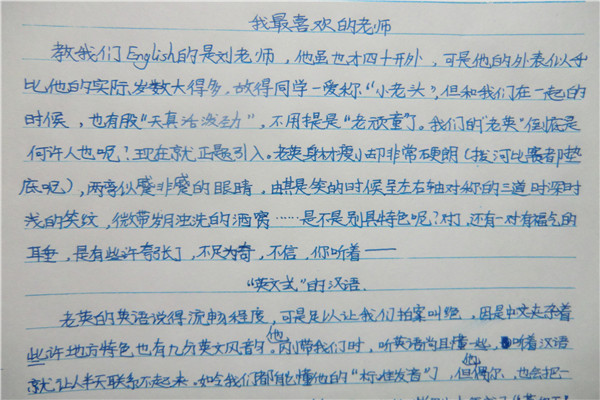 我最喜欢的老师
教我们English的是刘老师，他虽也才四十开外，可是他的外表似乎
比他的实际岁数大得多，故得同学一爱称"小老头"，但和我们在一起的
时候，也有股"天真活泼劲"，不用提是"老顽童"了。我们的"老英"到底是
何许人也呢？现在就正题引入。老英身材瘦小却非常硬朗（拔河比赛都垫
底呢），两弯似蹙非蹙的眼睛，由其是笑的时候呈左右轴对称的三道时深时
浅的笑纹，微带岁月浊洗的酒窝……是不是别具特色呢？对了，还有一对有福气的
耳垂，是有些许夸张了，不足为奇，不信，你听着——
"英文式"的汉语
老英的英语说得流畅程度，可是足以让我们拍案叫绝，因是中文夹杂着
些许地方特色也有九分英文风音的。他刚带我们时，听英语尚且懂一些，听着汉语
就让人半天联系不起来。如今我们都能懂他的"标准发音"了，但他偶尔，也会把一